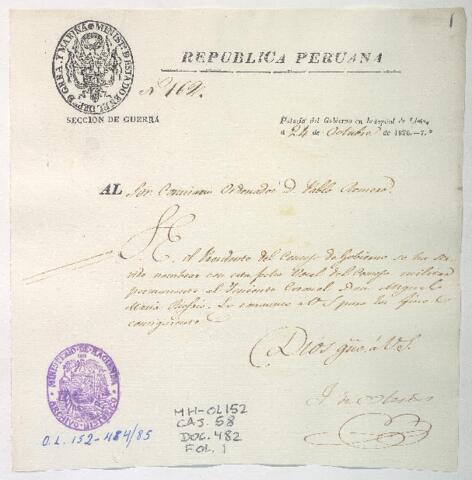 1
MINIST. D ESTADO EN EL DEPo. D GRRA. Y MARINA
REPUBLICA PERUANA
N 162.
SECCION DE GUERRA
Palacio del Gobierno en la capital de Lima,
a 24 de Octubre de 1826.—7.º
AL Sor. Comisario Ordenador D. Pablo Romero.
S. E. el Presidente del Consejo de Gobierno se ha ser
vido nombrar con esta fecha Vocal del Consejo militar
permanente al Teniente Coronel Don Miguel
Maria. Lo comunico a V.S. para los fines
consiguientes.
Dios gûe. á V.S.
MINISTERIO DE HACIENDA
ARCHIVO HISTORICO
O.L. 152-484/85
MH-OL152
CAJ. 58
DOC. 482
FOL. 1